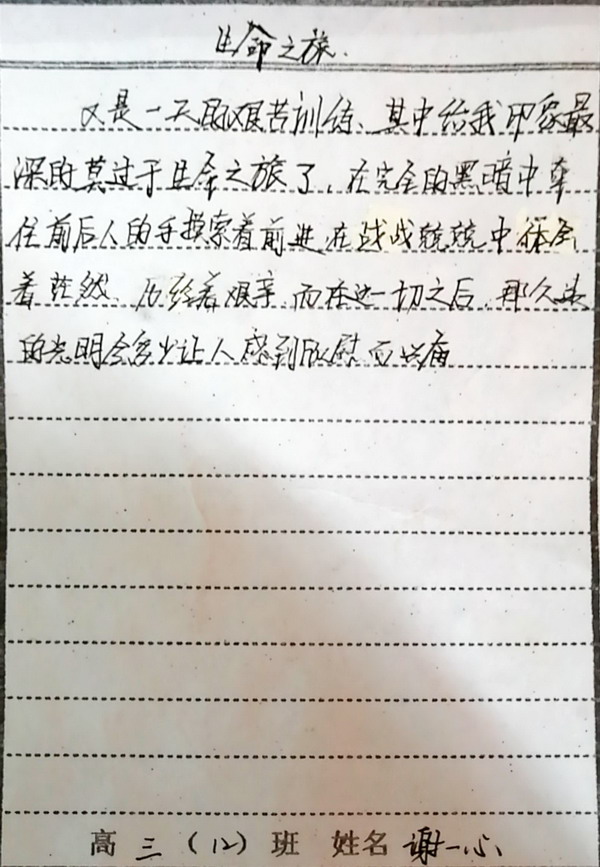 生命之旅.
又是一天的艰苦训练、其中给我印象最
深的莫过于生命之旅了,在完全的黑暗中牵
住前后人的手摸索着前进,在战战兢兢中体会
着茫然,历经着艰辛,而在这一切之后,那久违
的光明会多少让人感到欣慰而兴奋
高三(12)班 姓名 谢一心